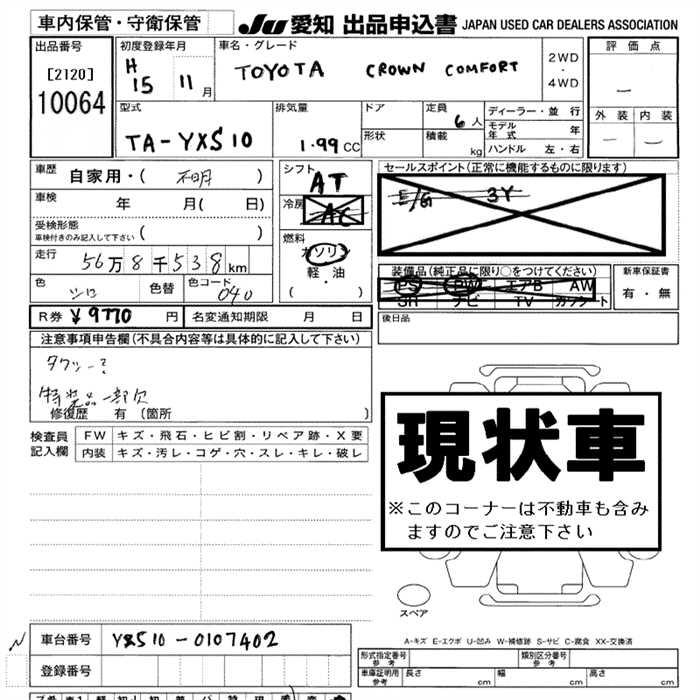 車内保管・守衛保管
JU 愛知 出品申込書 JAPAN USED CAR DEALERS ASSOCIATION
出品番号
[2120]
10064
初度登録年月
H 15 11 月
車名・グレード
TOYOTA CROWN COMFORT
2WD
・
4WD
評価点
型式
TA-YXS10
排気量
1.99 CC
ドア
形状
定員
6 人
積載
kg
ディーラー・並 行
モデル年式 年
ハンドル 左・右
外装 内装
車歴
自家用・( 不明 )
車検 年 月( 日)
受検形態
車検付きのみ記入して下さい ( )
走行
56万8千538km
色
シロ
色替
色コード
040
シフト
AT
冷房
AC
燃料
ガソリン
・
軽油
( )
セールスポイント(正常に機能するものに限ります)
E/G 3Y
装備品(純正品に限り○をつけてください)
PS PW エアB AW
SR ナビ TV カワシート
新車保証書
有・無
R券 ¥9770 円
名変通知期限 月 日
後日品
注意事項申告欄(不具合内容等は具体的に記入して下さい)
特装品一部欠
修復歴 有 (箇所 )
検査員
記入欄
FW キズ・飛石・ヒビ割・リペア跡・X要
内装 キズ・汚レ・コゲ・穴・スレ・キレ・破レ
現状車
※このコーナーは不動車も含み
ますのでご注意下さい
スペア
A-キズ E-エクボ U-凹み W-補修跡 S-サビ C-腐食 XX-交換済
N
車台番号 YXS10-0107402
登録番号
形式指定番号
参考
類別区分番号
参考
車庫証明用
参考
長さ cm 幅 cm 高さ cm